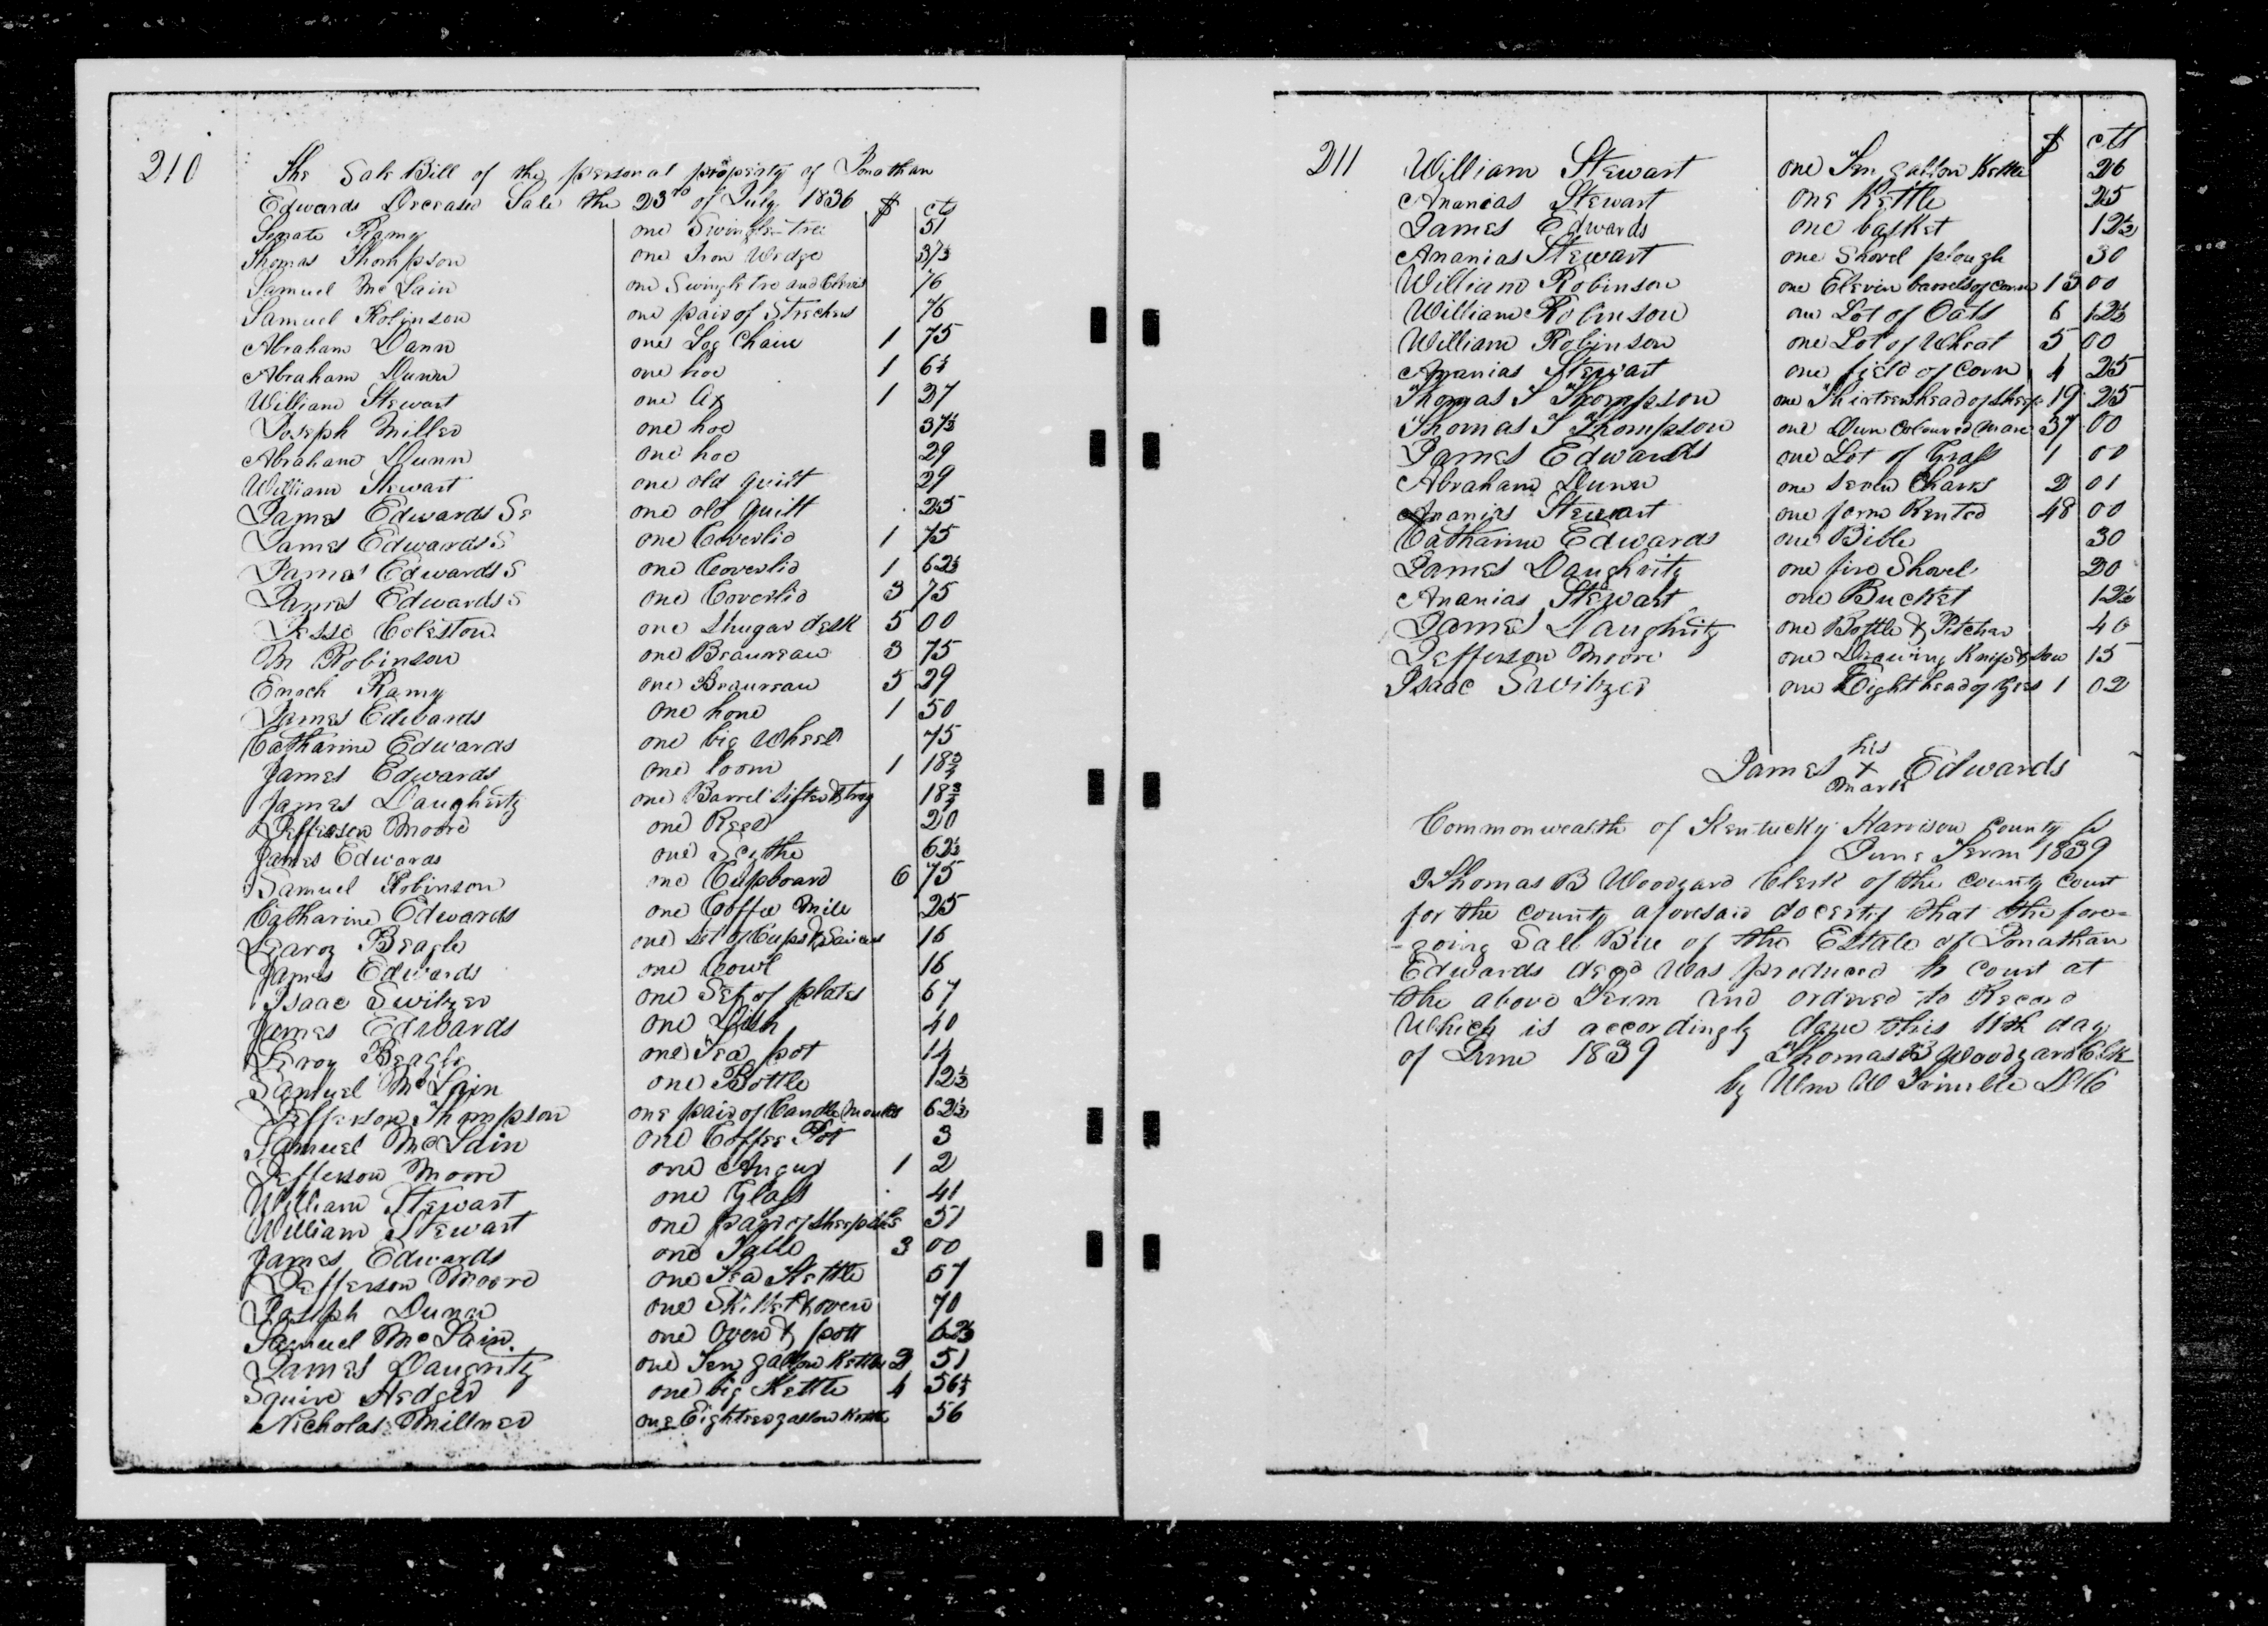 210
The Sale Bill of the personal property of Jonathan
Edwards Deceased Sale the 23rd of July 1836 $ cts
Senate Ramy one Swingle-tree 51
Thomas Thompson one Iron Wedge 37½
Samuel McLain one Swingletree and Clevis 76
Samuel Robinson one pair of Strechers 76
Abraham Dann one Log Chain 1 75
Abraham Dunn one hoe 1 6¼
William Stewart one Ax 1 37
Joseph Miller one hoe 37½
Abraham Dunn one hoe 29
William Stewart one old quilt 29
James Edwards Sr one old Quilt 25
James Edwards S one Coverlid 1 75
James Edwards S one Coverlid 1 62½
James Edwards S one Coverlid 3 75
Jesse Coleston one Shugar desk 5 00
M Robinson one Beaureau 3 75
Enoch Ramy one Beaureau 5 29
James Edwards one hone 1 50
Catharine Edwards one big Wheel 75
James Edwards one loom 1 18¾
James Daugherty one Barrel sifter & tray 18¾
Jefferson Moore one Reel 20
James Edwards one Scythe 62½
Samuel Robinson one Cupboard 6 75
Catharine Edwards one Coffee Mill 25
Learoy Beagle one set of Cups & Saucers 16
James Edwards one bowl 16
Isaac Switzer one Set of plates 67
James Edwards one Dish 40
Leroy Beagle one Tea pot 14
Samuel McLain one Bottle 12½
Jefferson Thompson one pair of Candle Moulds 62½
Samuel McLain one Coffee Pot 3
Jefferson Moore one Augur 1 2
William Stewart one Glass 41
William Stewart one pair of Sheep 51
James Edwards one Table 3 00
Jefferson Moore one Tea Kettle 57
Joseph Dunn one Skillet & oven 70
Samuel McLain one Oven & pott 62½
James Daugrity one Ten gallon Kettle 2 51
Squire Hedger one big Kettle 4 56¼
Nicholas Millner one Eighteen gallon Kettle 56
211 $ cts
William Stewart one Ten gallon Kettle 26
Ananias Stewart one Kettle 25
James Edwards one basket 12½
Ananias Stewart one Shovel plough 30
William Robinson one Eleven barrels of corn 15 00
William Robinson one Lot of Oats 6 12½
William Robinson one Lot of Wheat 5 00
Ananias Stewart one field of Corn 4 25
Thomas T Thompson one Thirteen head of sheep 19 25
Thomas T Thompson one Dun Coloured Mare 37 00
James Edwards one Lot of Grass 1 00
Abraham Dunn one seven Chairs 2 01
Ananias Stewart one farm Rented 48 00
Catharine Edwards one Bible 30
James Daughrity one fire Shovel 20
Ananias Stewart one Bucket 12½
James Daughrity one Bottle & Pitcher 40
Jefferson Moore one Drawing Knife & Saw 15
Isaac Switzer one Eight head of Gees 1 02
his
James X Edwards
mark
Commonwealth of Kentucky Harrison County ss
June Term 1839
I Thomas B Woodyard Clerk of the County Court
for the county aforesaid do certify that the fore=
-going Sale Bill of the Estate of Jonathan
Edwards decd Was produced to court at
the above Term and ordered to Record
Which is accordingly done this 11th day
of June 1839 Thomas B Woodyard Clk
by Wm W Trimble DC